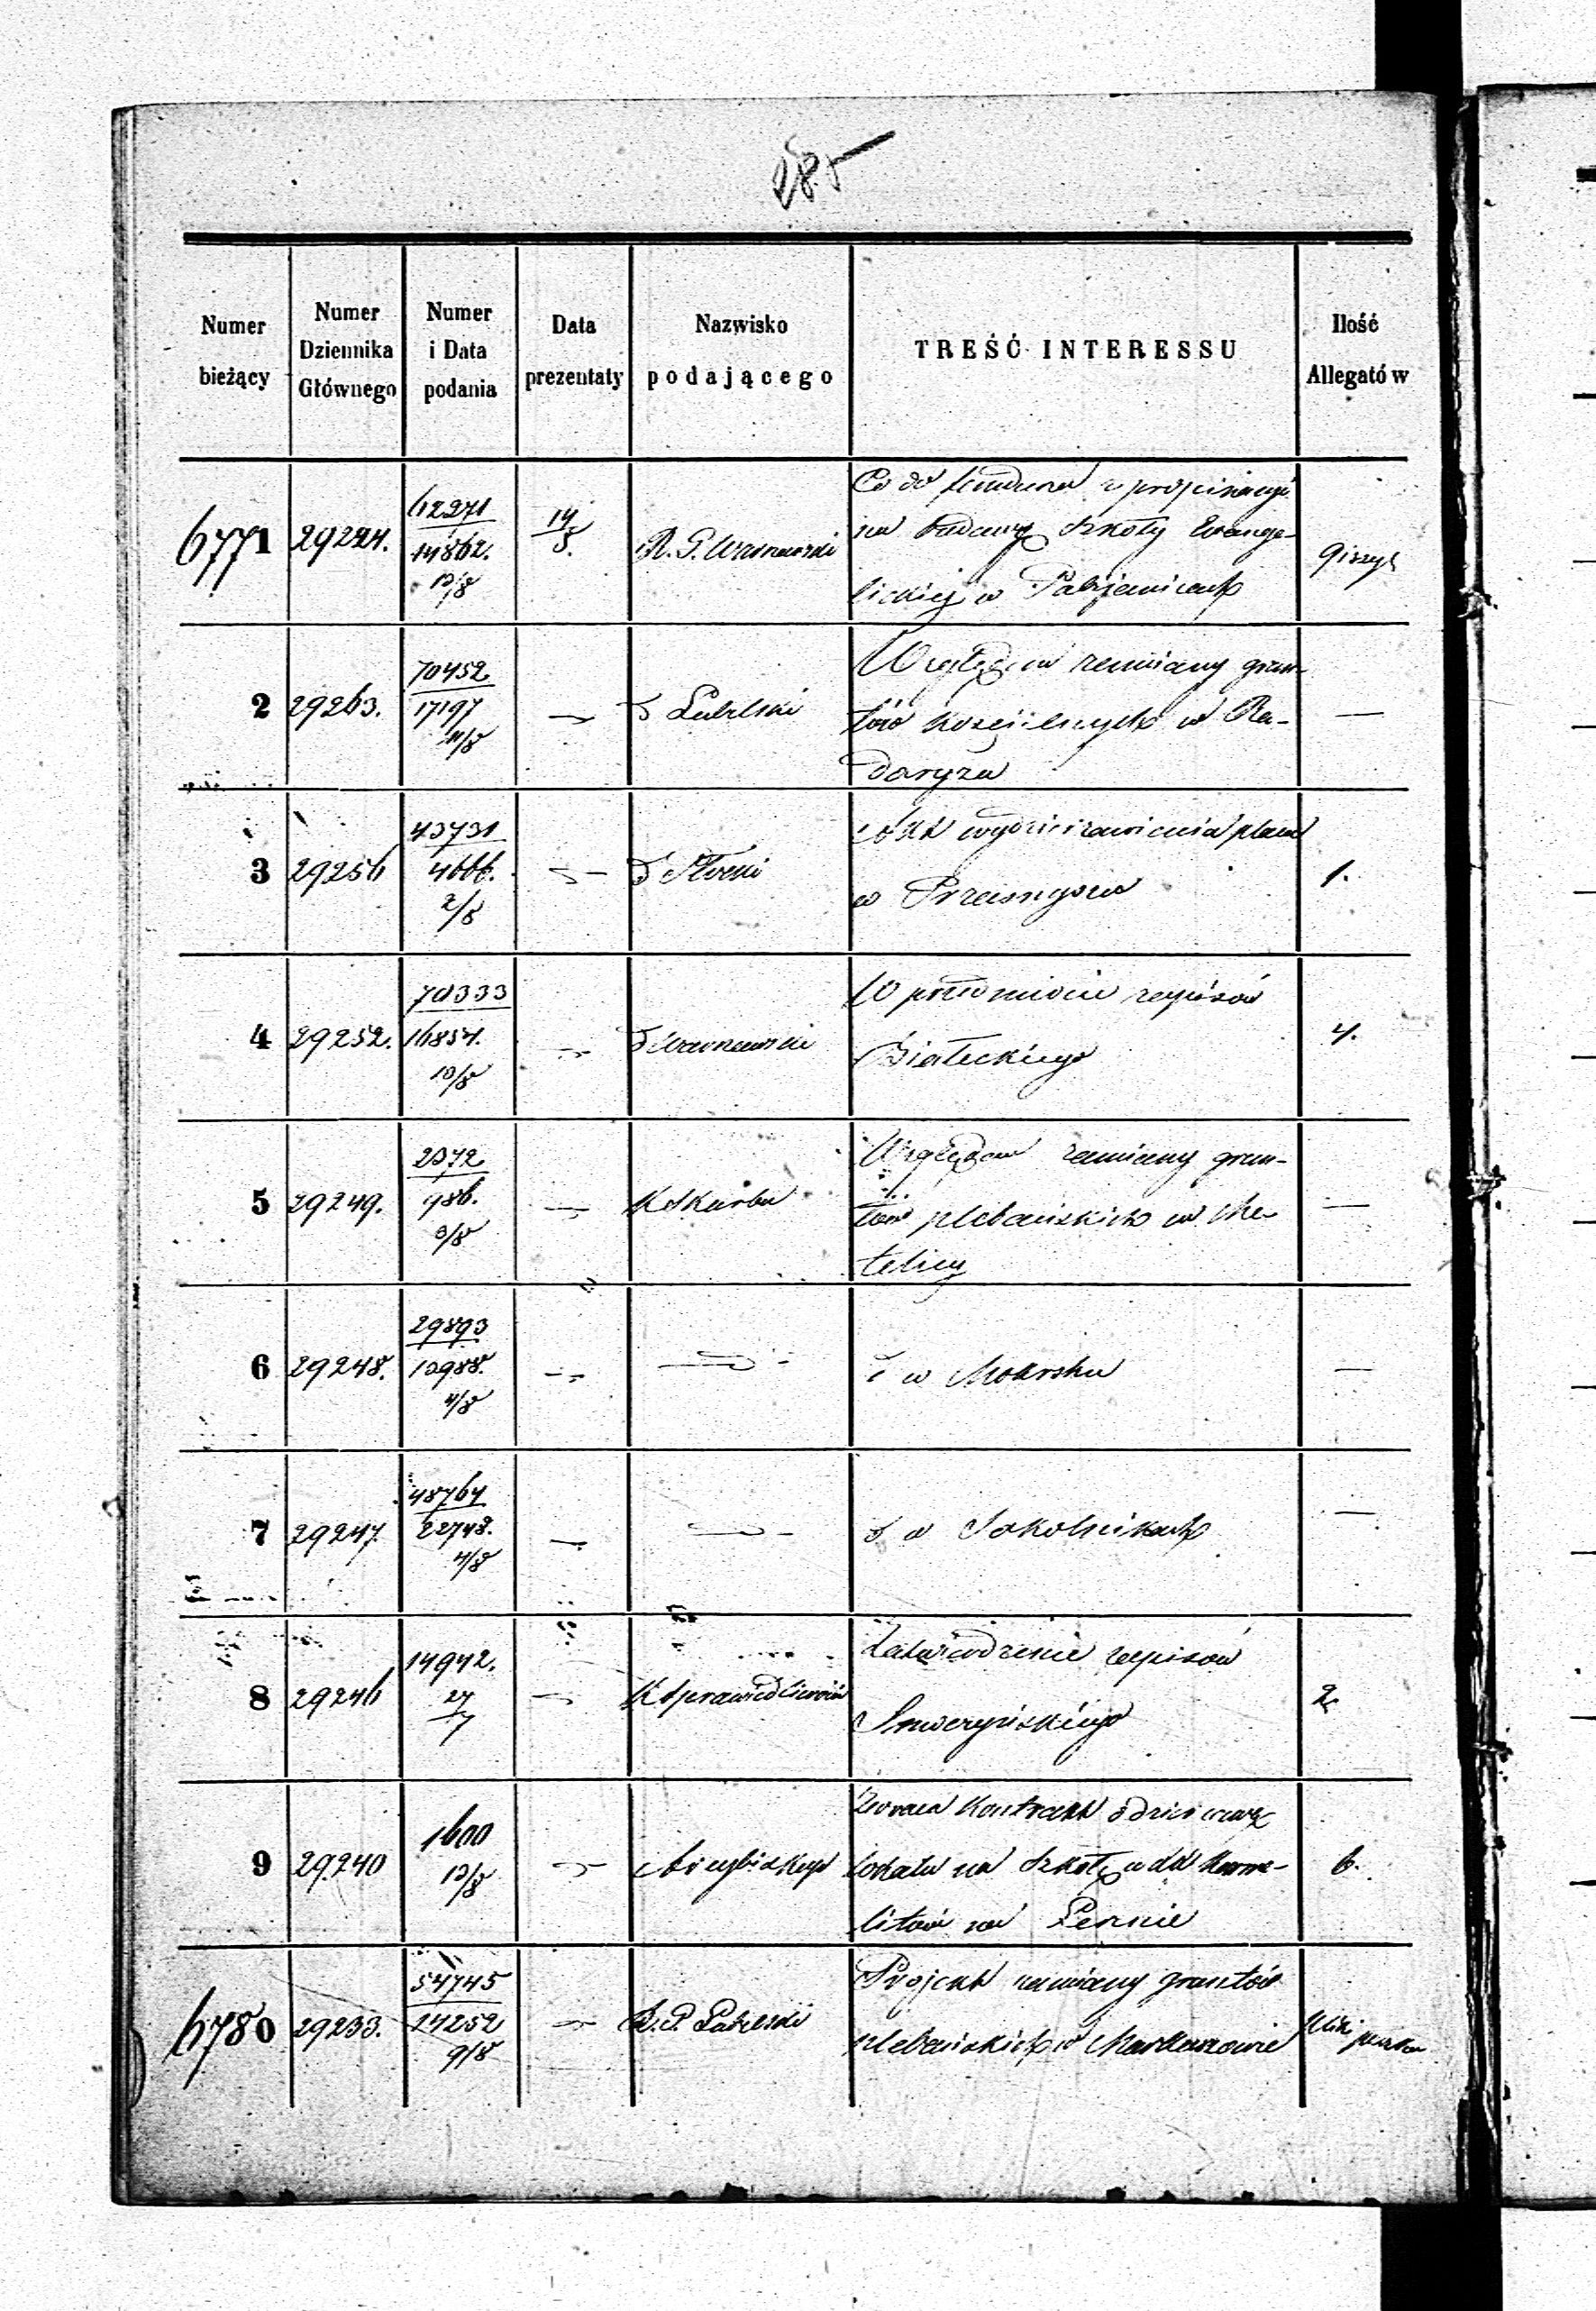 285
Numer bieżący
Numer Dziennika Głównego
Numer i Data podania
Data prezentaty
Nazwisko podającego
TREŚĆ INTERESSU
Ilość Allegatów
6771 29224. 62271 14862. 13/8 14/8. R. G. Warszawski
Co do funduszu z propinacyi
na budowę Szkoły Ewange-
lickiej w Pabijanicach
2 29263. 70452 17197 11/8 — Lubelski —
Względem zamiany grun-
tów kościelnych w Ra-
doryżu
3 29256 43731 4666. 2/8 — Płocki 1.
wydzierżawienia placu
w Przasnyszu
4 29252. 70333 16854. 10/8 — Warszawski 4.
W przedmiocie zapisów
Białeckiego
5 29249. 2372 986. 3/8 — K Skarbu —
Względem zamiany grun-
tów plebańskich w
6 29248. 29893 13988. 4/8 — — —
w Mokrsku
7 29247. 48764 22748. 4/8 — — —
w Sokolnikach
8 29246 14942. 27/7 — K Sprawiedliwości 2
Zatwierdzenie zapisów
9 29240 1600 13/8 — Arcybiskup 6.
Zwraca Kontrakt o dzierżawę
lokalu na Szkołę u XX Karme-
litów na Lesznie
6780 29233. 54745 14252 9/8 — R. G. Lubelski
Projekt zamiany gruntów
plebańskich w